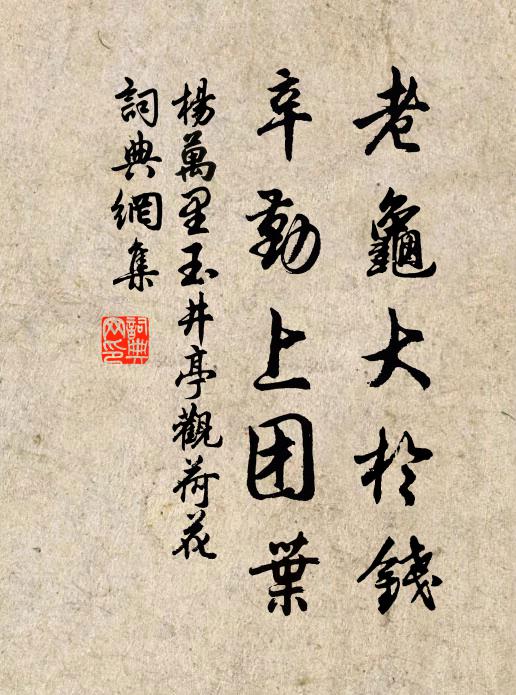 老龜大於錢
辛勤上团葉
楊萬里玉井亭觀荷花
詞典網集
詞典
网印